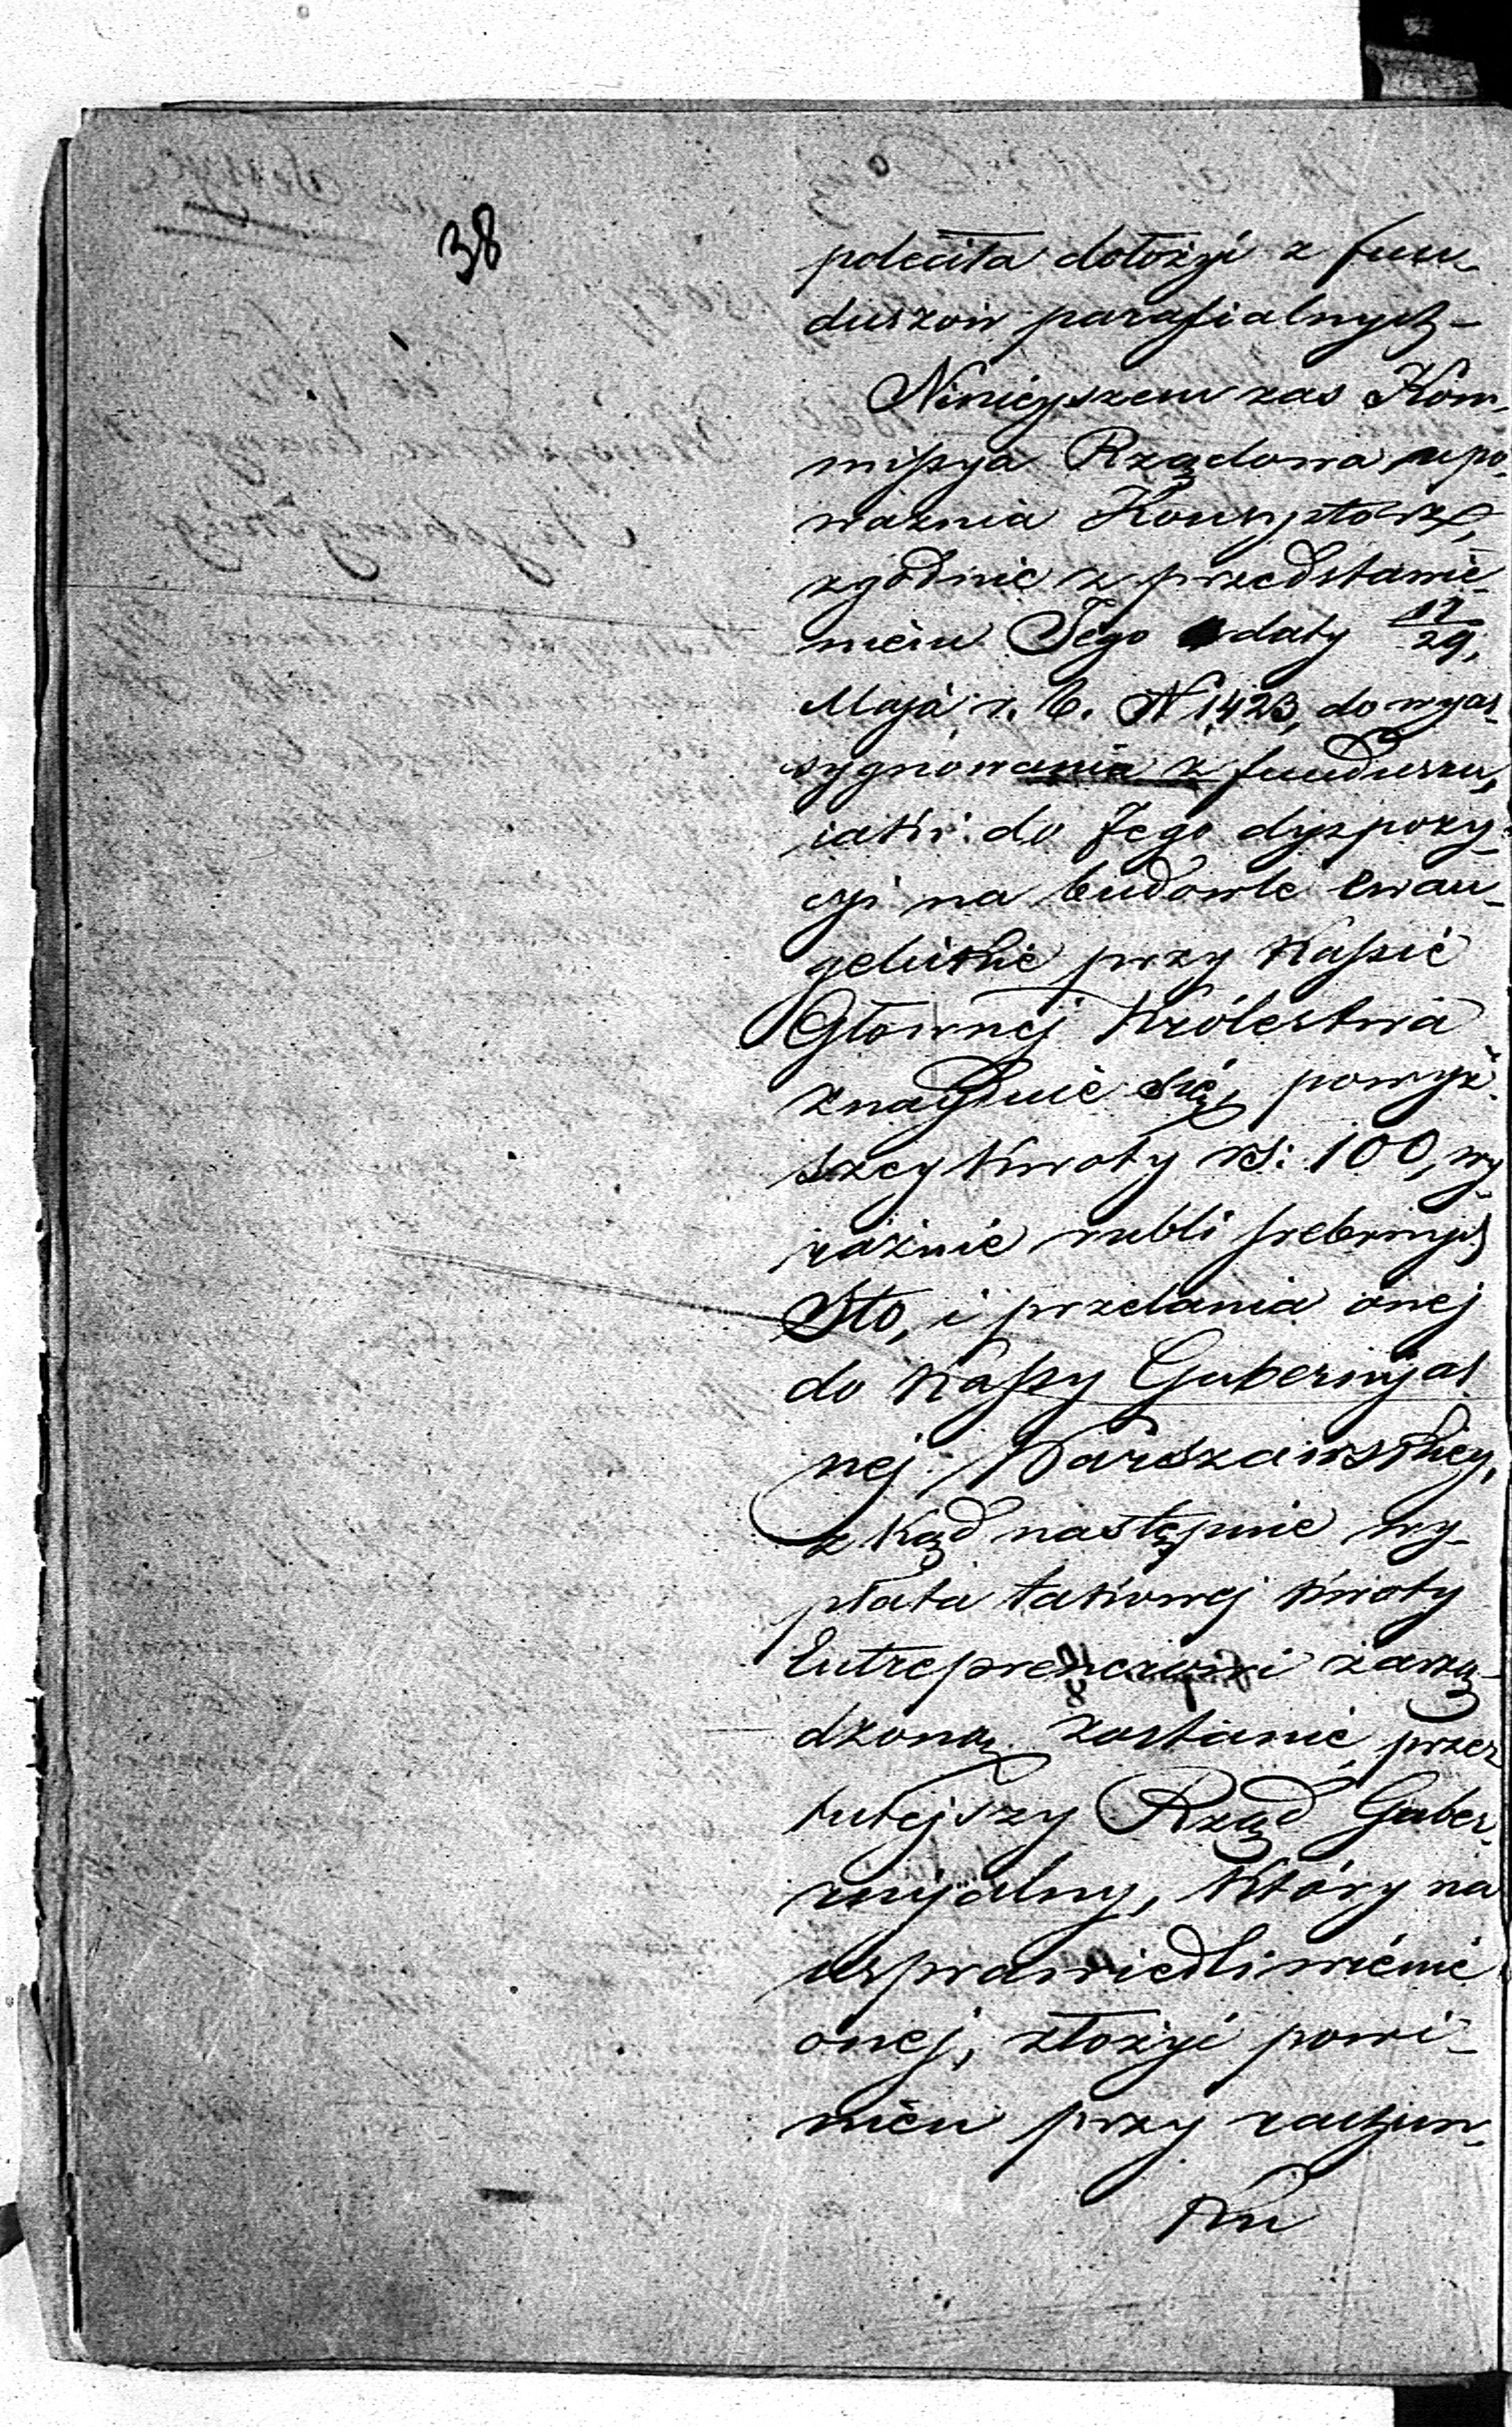 38
poleciła dołożyć z fun-
duszów parafialnych-
Niniejszem zas Kom-
missya Rządowa upo-
ważnia Konsystorz,
zgodnie z przedstawie-
niem Jego z daty 17/29,
Maja r. b. N 1423, do wyas-
sygnowania z funduszu,
iaki do Jego dyspozy-
cyi na budowle ewan-
gelickie przy Kassie
Głownej Królestwa
znayduie się, powyż-
szey kwoty rs: 100, wy-
raźnie rubli srebrnych
Sto, i przelania onej
do Kassy Gubernjal-
nej Warszawskiey,
z kąd następnie wy-
płata takowej kwoty
Entreprenerowi zarzą-
dzoną zostanie przez
tutejszy Rząd Guber-
nijalny, który na
usprawiedliwienie
onej, złożyć powi-
nien przy rachun-
ku